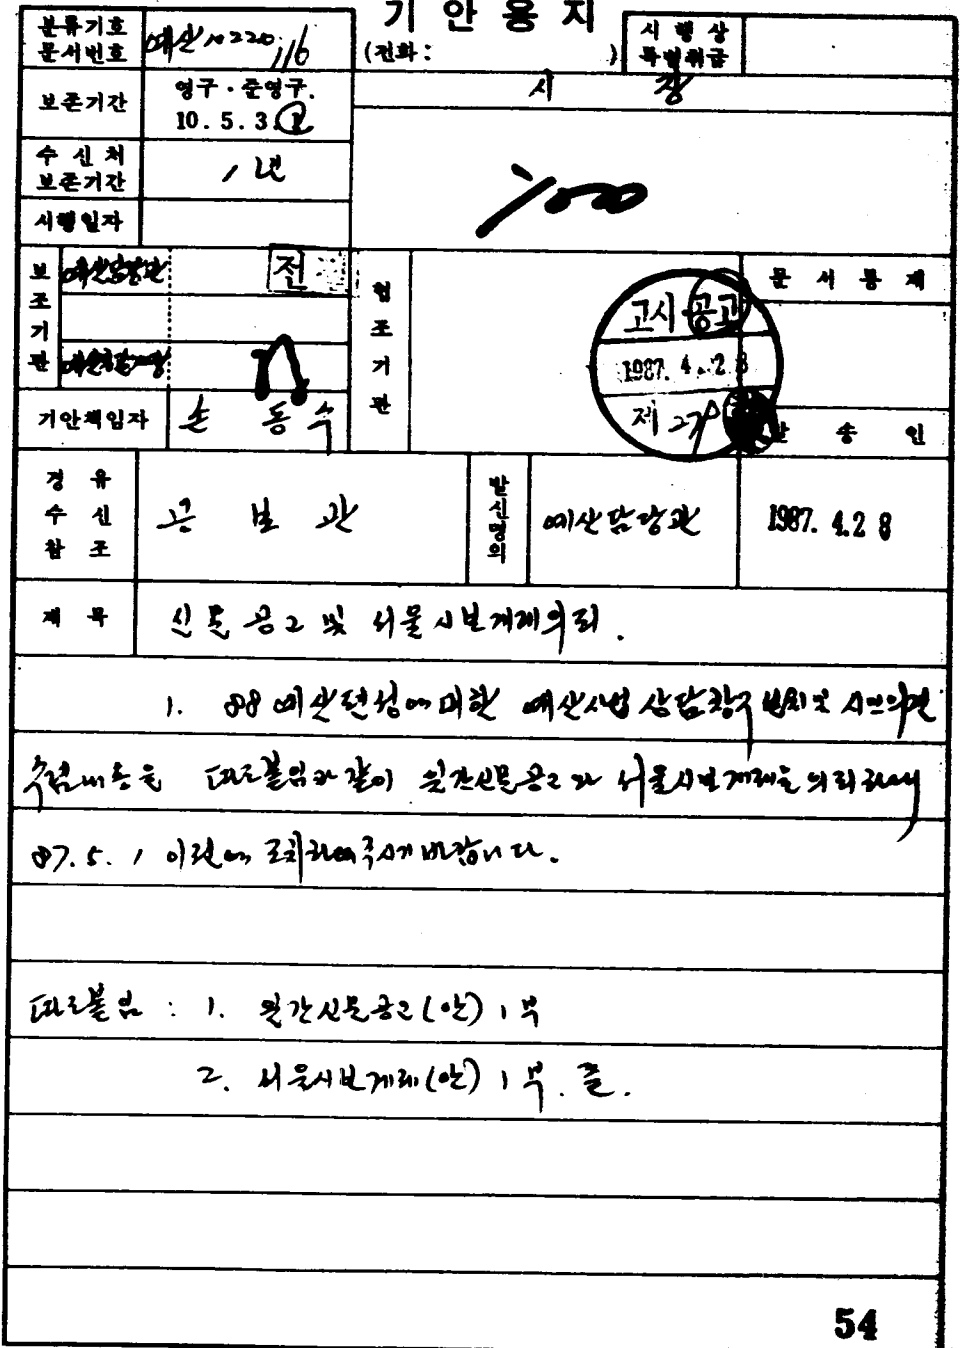 기안용지
분류기호 문서번호 예산10220-116
(전화: )
시행상 특별취급
보존기간 영구·준영구. 10. 5. 3. 1
시 장
수신처 보존기간 1년
시행일자
보조기관 예산담당관 전
협조기관
문서통제
고시 공고
1987. 4. 28
제 270
기안책임자 손동수
발송인
경유 수신 참조 공보관
발신명의 예산담당관
1987. 4. 28
제목 신문공고 및 서울시보게재의뢰.
1. 88 예산편성에 대한 예산사업 상담창구 설치 및 시민의견
수렴내용을 따로붙임과 같이 일간신문공고와 서울시보게재를 의뢰하오니
87. 5. 1 이전에 조치하여주시기 바랍니다.
따로붙임 : 1. 일간신문공고(안) 1부
2. 서울시보게재(안) 1부. 끝.
54